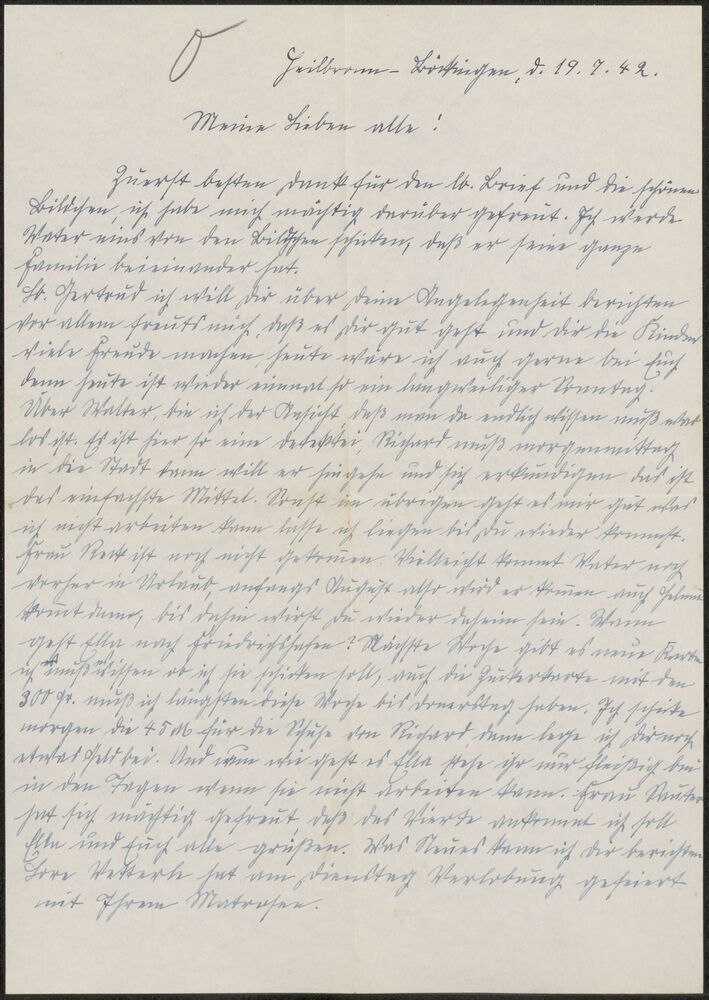 Heilbronn-Böckingen, d. 19.7.42.
Meine Lieben alle!
Zuerst besten Dank für den lb. Brief und die schönen
Bildchen, ich habe mich mächtig darüber gefreut. Ich werde
Vater eins von den Bildchen schicken, daß er seine ganze
Familie beieinander hat.
Lb. Gertrud ich will Dir über Deine Angelegenheit berichten
vor allem freuts mich, daß es Dir gut geht und Dir die Kinder
viele Freude machen, heute wäre ich auch gerne bei Euch
denn heute ist wieder einmal so ein langweiliger Sonntag.
Über Walter, bin ich der Ansicht daß man da endlich wissen muß was
los ist. Es ist hier so eine Detektei, Richard muß morgenmittag
in die Stadt dann will er hingehe und sich erkundigen das ist
das einfachste Mittel. Sonst im übrigen geht es mir gut was
ich nicht arbeiten kann lasse ich liegen bis Du wieder kommst.
Frau ist noch nicht gekommen. Vielleicht kommt Vater noch
vorher in Urlaub, anfangs August also wird er kommen auch
kommt dann, bis dahin wirst Du wieder daheim sein. Wann
geht Ella nach Friedrichshafen? Nächste Woche gibt es neue Karten
ich muß wissen ob ich sie schicken soll, auch die Zuckerkarte mit den
300 gr. muß ich längstens diese Woche bis Donnerstag haben. Ich schicke
morgen die 45 M für die Schuhe von Richard, dann lege ich Dir noch
etwas Geld bei. Und nun wie geht es Ella stehe ihr nur fleißig bei
in den Tagen wenn sie nicht arbeiten kann. Frau
hat sich mächtig gefreut daß das Vierte ankommt ich soll
Ella und Euch alle grüßen. Was Neues kann ich Dir berichten
Lore Vetterle hat am Dienstag Verlobung gefeiert
mit Ihrem Matrosen.